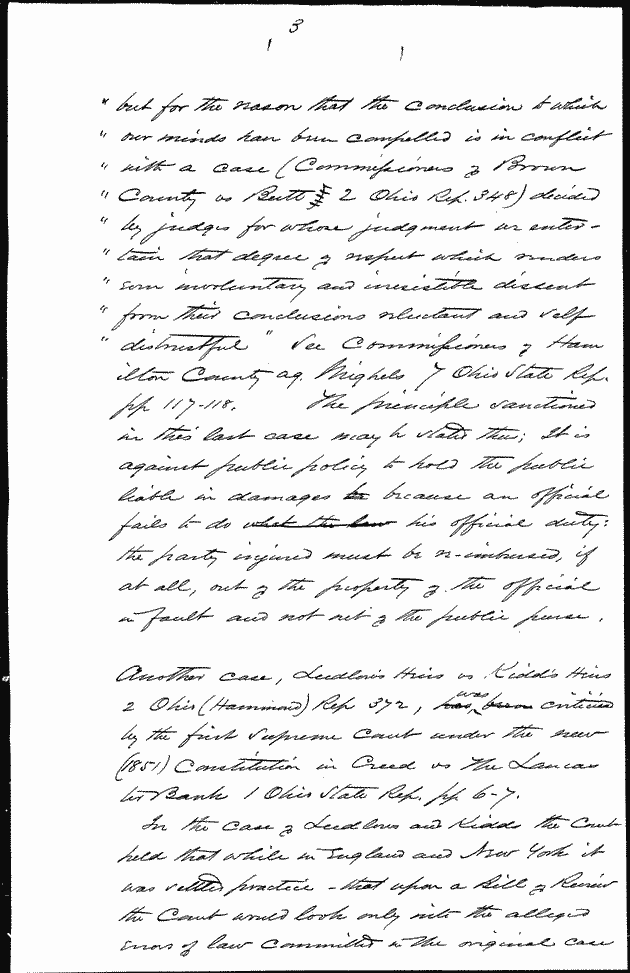 3
" but for the reason that the conclusion to which
" our minds have been compelled is in conflict
" with a case (Commissioners of Brown
" County vs Butt 2 Ohio Rep. 348) decided
" by judges for whose judgment we enter-
" tain that degree of respect which renders
" even involuntary and irresistible dissent
" from their conclusions reluctant and self
" distrustful " See Commissioners of Ham
ilton County ag. Mighels 7 Ohio State Rep.
pp 117-118. The principle sanctioned
in this last case may be stated thus; It is
against public policy to hold the public
liable in damages because an official
fails to do what the law his official duty:
the party injured must be re-imbursed, if
at all, out of the property of the official
in fault and not out of the public purse.
Another case, Ludlow's Heirs vs Kidd's Heirs
2 Ohio (Hammond) Rep 372, has been was criticised
by the first Supreme Court under the new
(1851) Constitution in Creed vs The Lancas
ter Bank 1 Ohio State Rep. pp 6-7.
In the case of Ludlows and Kidds the Court
held that while in England and New York it
was settled practice - that upon a Bill of Review
the Court would look only into the alleged
errors of law committed in the original case